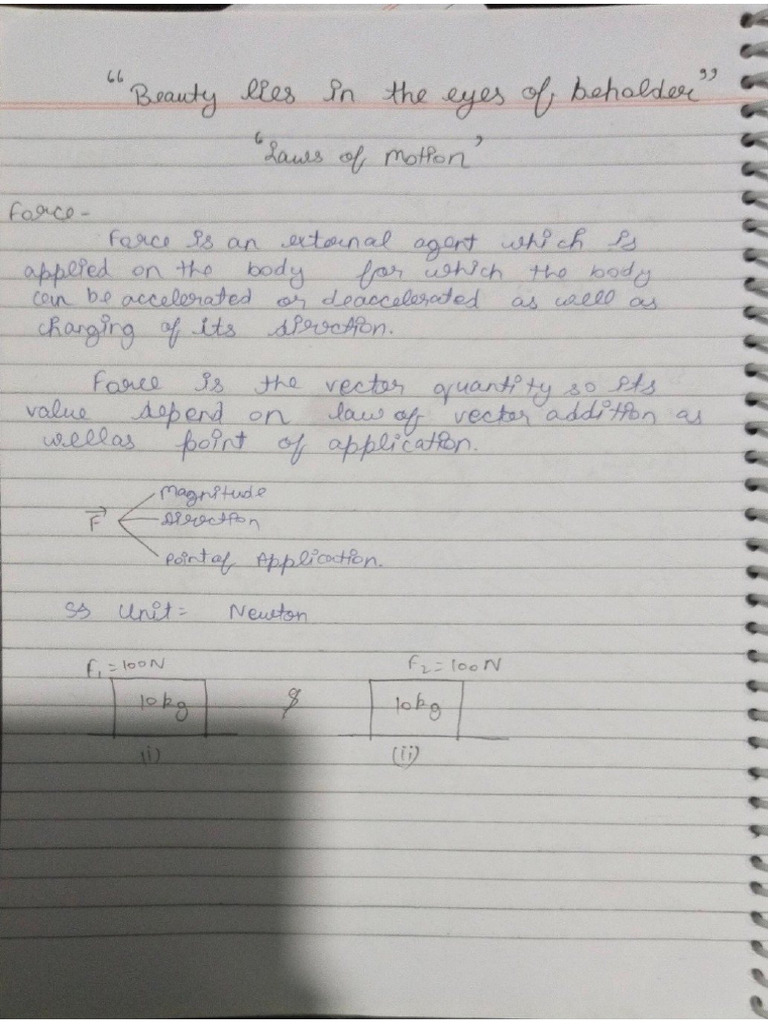 "Beauty lies in the eyes of beholder"
'Laws of motion'
Force -
Force is an external agent which is
applied on the body for which the body
can be accelerated or deaccelerated as well as
changing of its direction.
Force is the vector quantity so its
value depend on law of vector addition as
wellas point of application.
Magnitude
F⃗ Direction
Point of Application.
SI Unit = Newton
F₁ = 100N F₂ = 100N
10kg & 10kg
(i) (ii)